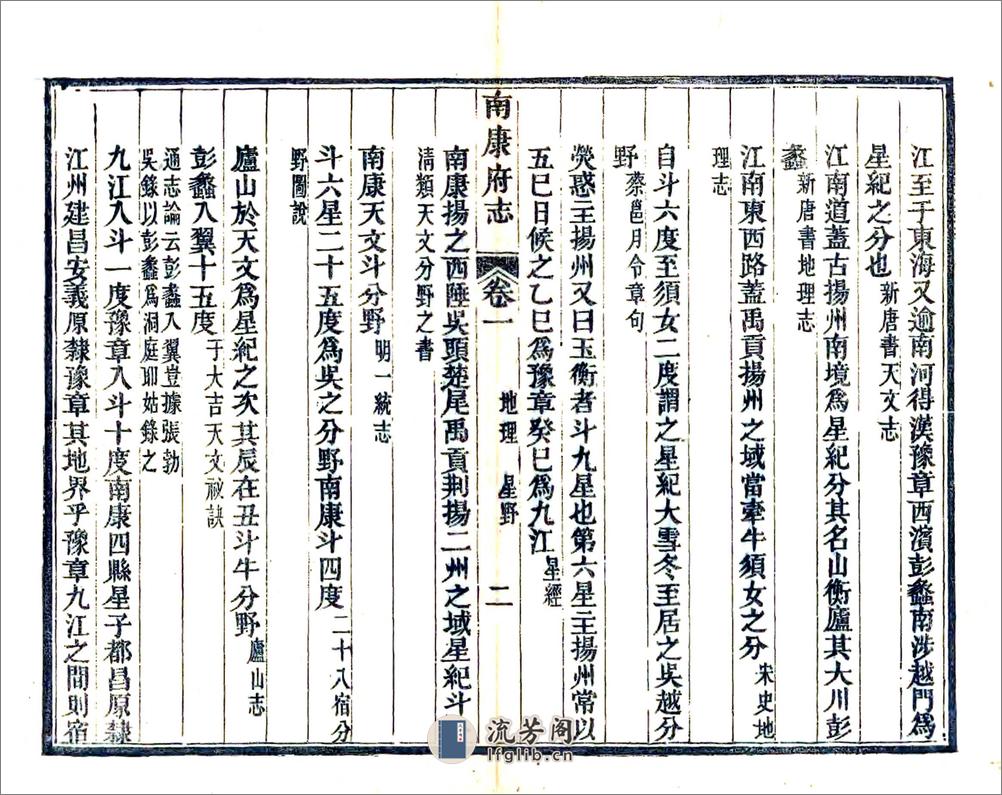 江至于東海又逾南河得漢豫章西濱彭蠡南涉越門爲
星紀之分也新唐書天文志
江南道蓋古揚州南境爲星紀分其名山衡廬其大川彭
蠡新唐書地理志
江南東西路蓋禹貢揚州之域當牽牛須女之分宋史地
理志
自斗六度至須女二度謂之星紀大雪冬至居之吳越分
野蔡邕月令章句
熒惑主揚州又曰玉衡者斗九星也第六星主揚州常以
五巳日候之乙巳爲豫章癸巳爲九江星經
南康揚之西陲吳頭楚尾禹貢荆揚二州之域星紀斗
南康府志 卷一 地理 星野 二
清類天文分野之書
南康天文斗分野明一統志
斗六星二十五度爲吳之分野南康斗四度二十八宿分
野圖說
廬山於天文爲星紀之次其辰在丑斗牛分野廬山志
彭蠡入翼十五度于大吉天文祕訣
通志論云彭蠡入翼豈據張勃
吳錄以彭蠡爲洞庭耶姑錄之
九江入斗一度豫章入斗十度南康四縣星子都昌原隸
江州建昌安義原隸豫章其地界乎豫章九江之間則宿
流芳阁
lfglib.cn